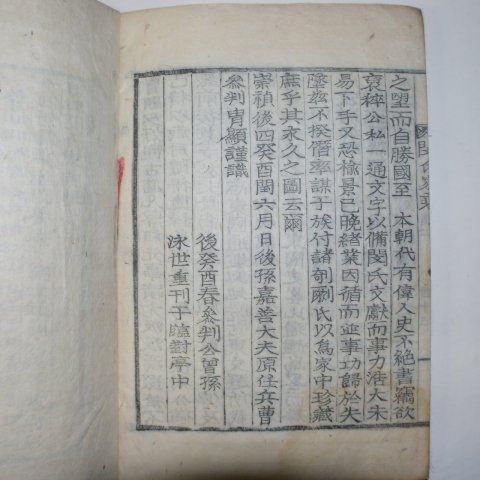 之望而自勝國至 本朝代有偉人史不絶書竊欲
裒稡公私一通文字以備閔氏文獻而事力浩大未
易下手又恐楡景已晩緖業因循而並事功歸於失
墜玆不揆僭率謀于族付諸剞劂氏以爲家中珍藏
庶乎其永久之圖云爾
崇禎後四癸酉閏六月日後孫嘉善大夫原任兵曹
參判胄顯謹識
後癸酉春參判公曾孫
泳世重刊于隨對亭中
閔氏家乘